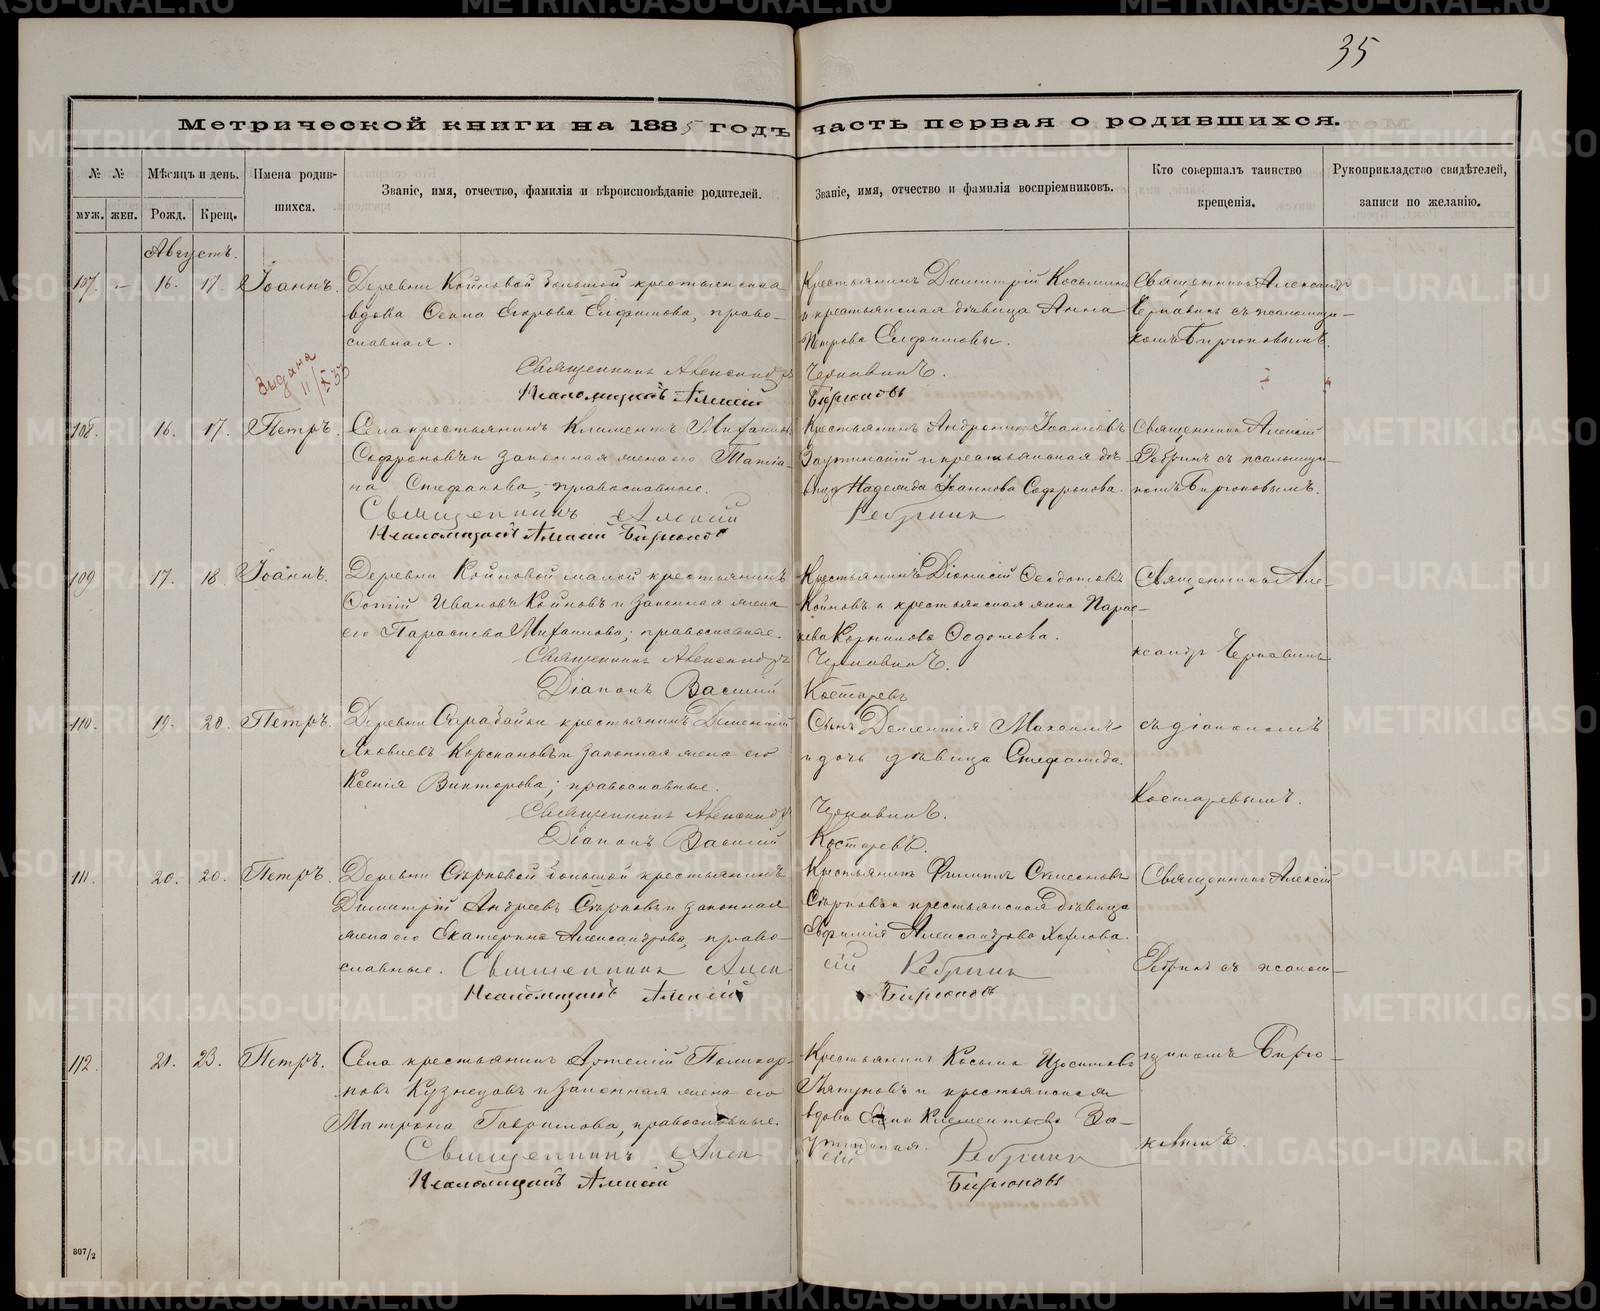 35
Метрической книги на 1885 годъ часть первая о родившихся.
№ № Мѣсяцъ и день. Имена родив-
шихся.
муж. жен. Рожд. Крещ.
Званіе, имя, отчество, фамилія и вѣроисповѣданіе родителей.
Званіе, имя, отчество и фамилія воспріемниковъ.
Кто совершалъ таинство
крещенія.
Рукоприкладство свидѣтелей,
записи по желанію.
Августъ.
107. - 16. 17. Іоаннъ.
Деревни Койновой большой крестьянская
вдова Егорова Елфимова, право-
славная.
Крестьянинъ Димитрій Косьминъ
и крестьянская дѣвица Анна
Петрова Елфимовы.
Священникъ Александръ
Чернавинъ съ псаломщи-
комъ Бирюковымъ.
Священникъ Александръ Чернавинъ.
Псаломщикъ Алексій Бирюковъ
Выдана
11/X 33
108. 16. 17. Петръ.
Села крестьянинъ Климентъ Михаиловъ
Софроновъ и законная жена его Татіа-
на Стефанова, православные.
Крестьянинъ Андроникъ Іоанновъ
и крестьянская дѣ-
вица Надежда Іоаннова Софронова.
Священникъ Алексій
Ребринъ съ псаломщи-
комъ Бирюковымъ.
Священникъ Алексій Ребринъ
Псаломщикъ Алексій Бирюковъ
109 17. 18. Іоаннъ.
Деревни Койновой малой крестьянинъ
Фотій Ивановъ Койновъ и законная жена
его Параскева Михаилова; православные.
Крестьянинъ Діонисій Ѳеодотовъ
Койновъ и крестьянская жена Парас-
кева Корнилова Ѳедотова.
Священникъ Але-
ксандръ Чернавинъ
Священникъ Александръ Чернавинъ.
Діаконъ Василій Костаревъ
110. 19. 20. Петръ.
Деревни Сарабайки крестьянинъ Дементій
Яковлевъ и законная жена его
Ксенія Викторова; православные.
Сынъ Дементія
и дочь дѣвица Стефанида.
съ діакономъ
Костаревымъ.
Священникъ Александръ Чернавинъ.
Діаконъ Василій Костаревъ.
111. 20. 20. Петръ.
Деревни Сѣрковой большой крестьянинъ
Димитрій Андреевъ Сѣрковъ и законная
жена его Екатерина Александрова, право-
славные.
Крестьянинъ Филиппъ
Сѣрковъ и крестьянская дѣвица
Евфимія Александрова
Священникъ Алексій
Ребринъ съ псалом-
Священникъ Алексій Ребринъ
Псаломщикъ Алексій Бирюковъ
112 21. 23. Петръ.
Села крестьянинъ Артемій Поликар-
повъ Кузнецовъ и законная жена его
Матрона Гаврилова, православные.
Крестьянинъ Косьма
и крестьянская
вдова Анна Климентьева
щикомъ Бирю-
ковымъ.
Священникъ Алексій Ребринъ
Псаломщикъ Алексій Бирюковъ
807/2
METRIKI.GASO-URAL.RU